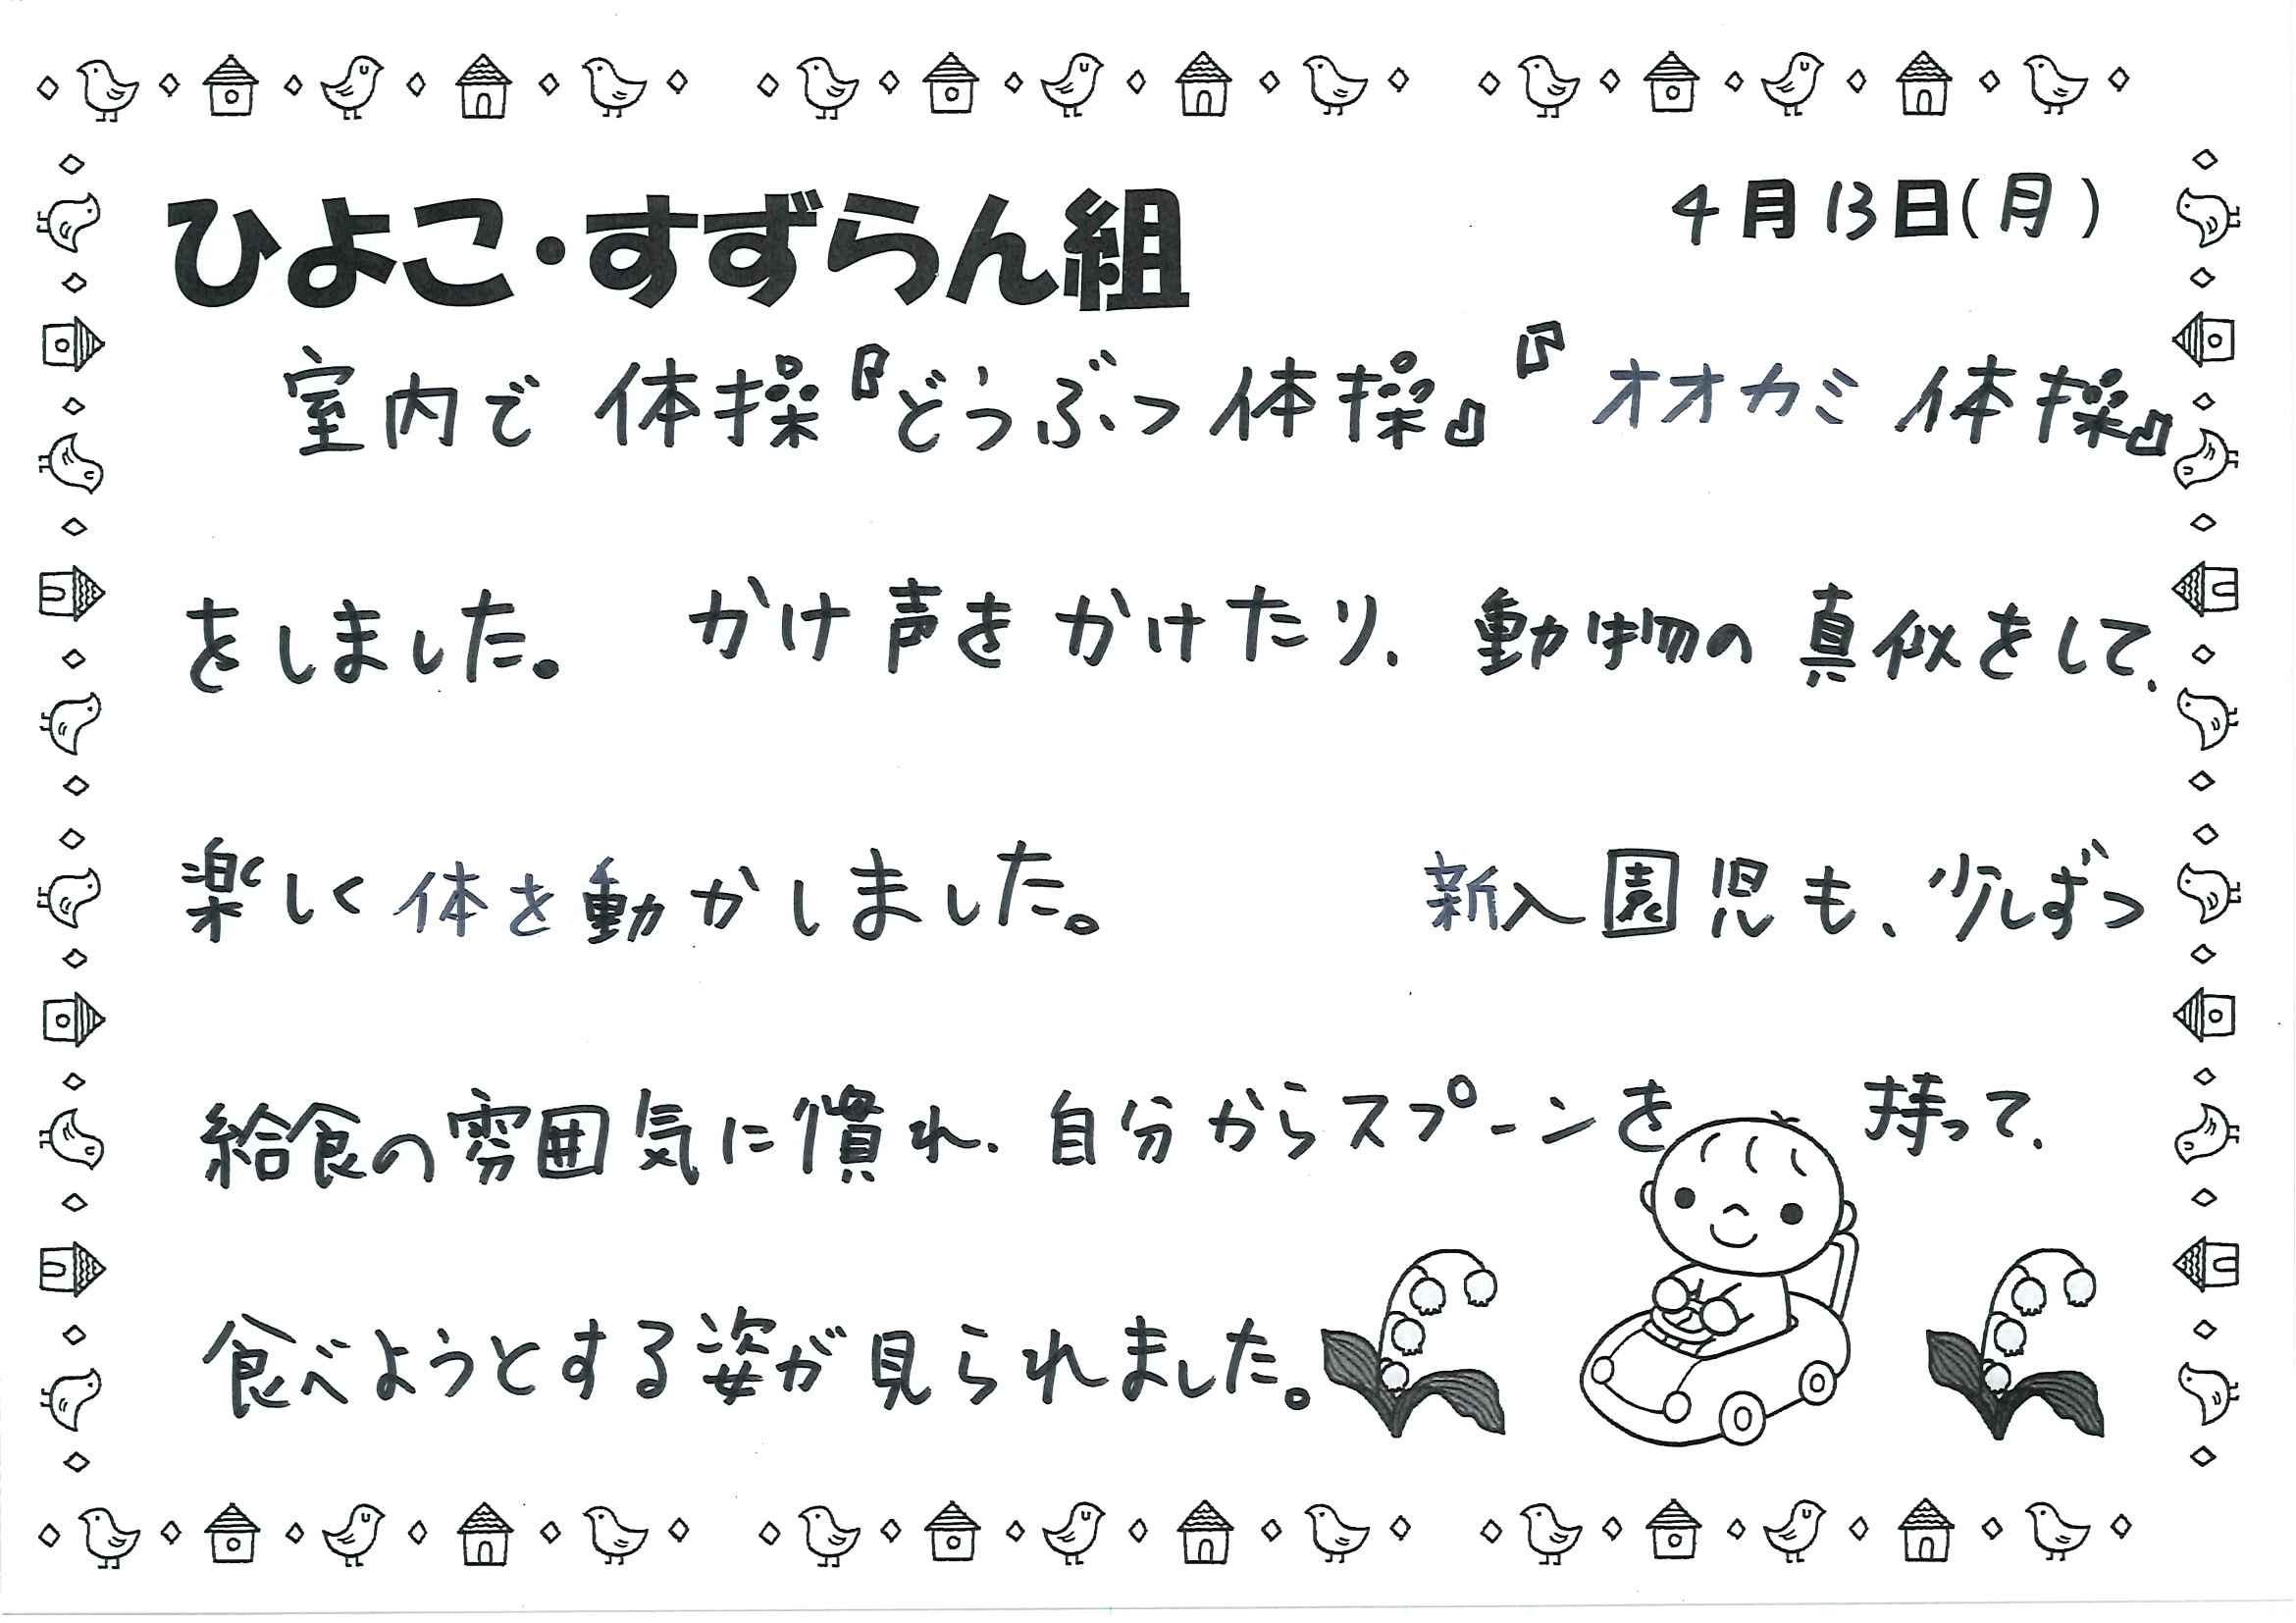 ひよこ・すずらん組
4月13日(月)
室内で体操『どうぶつ体操』『オオカミ体操』
をしました。 かけ声をかけたり、動物の真似をして、
楽しく体を動かしました。 新入園児も、少しずつ
給食の雰囲気に慣れ、自分からスプーンを持って、
食べようとする姿が見られました。